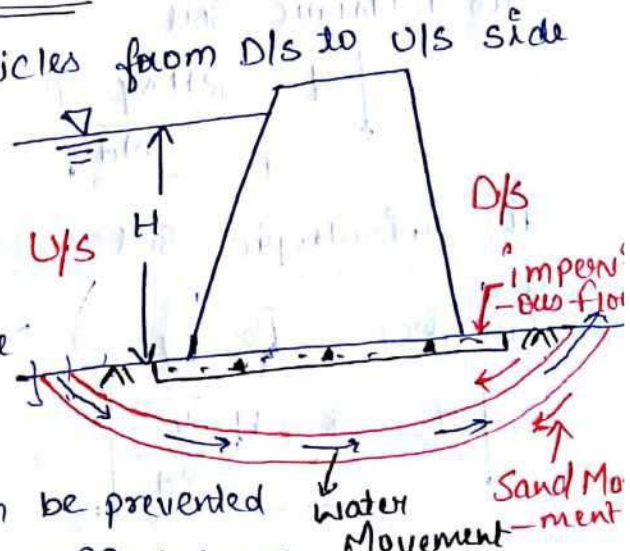 icles from D/s to U/s side
H
U/s
D/s
impervi
-ous floo
n be prevented
water
Movement
Sand Mo
-ment